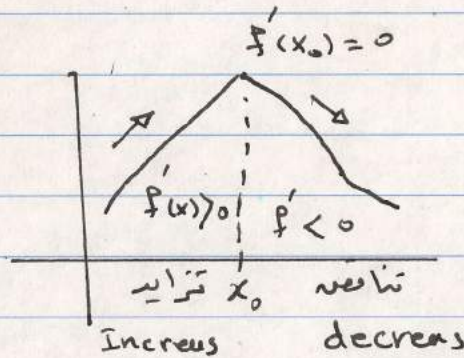 f'(x₀) = 0
f'(x) > 0 f' < 0
تزايد x₀ تناقص
Increus decreas